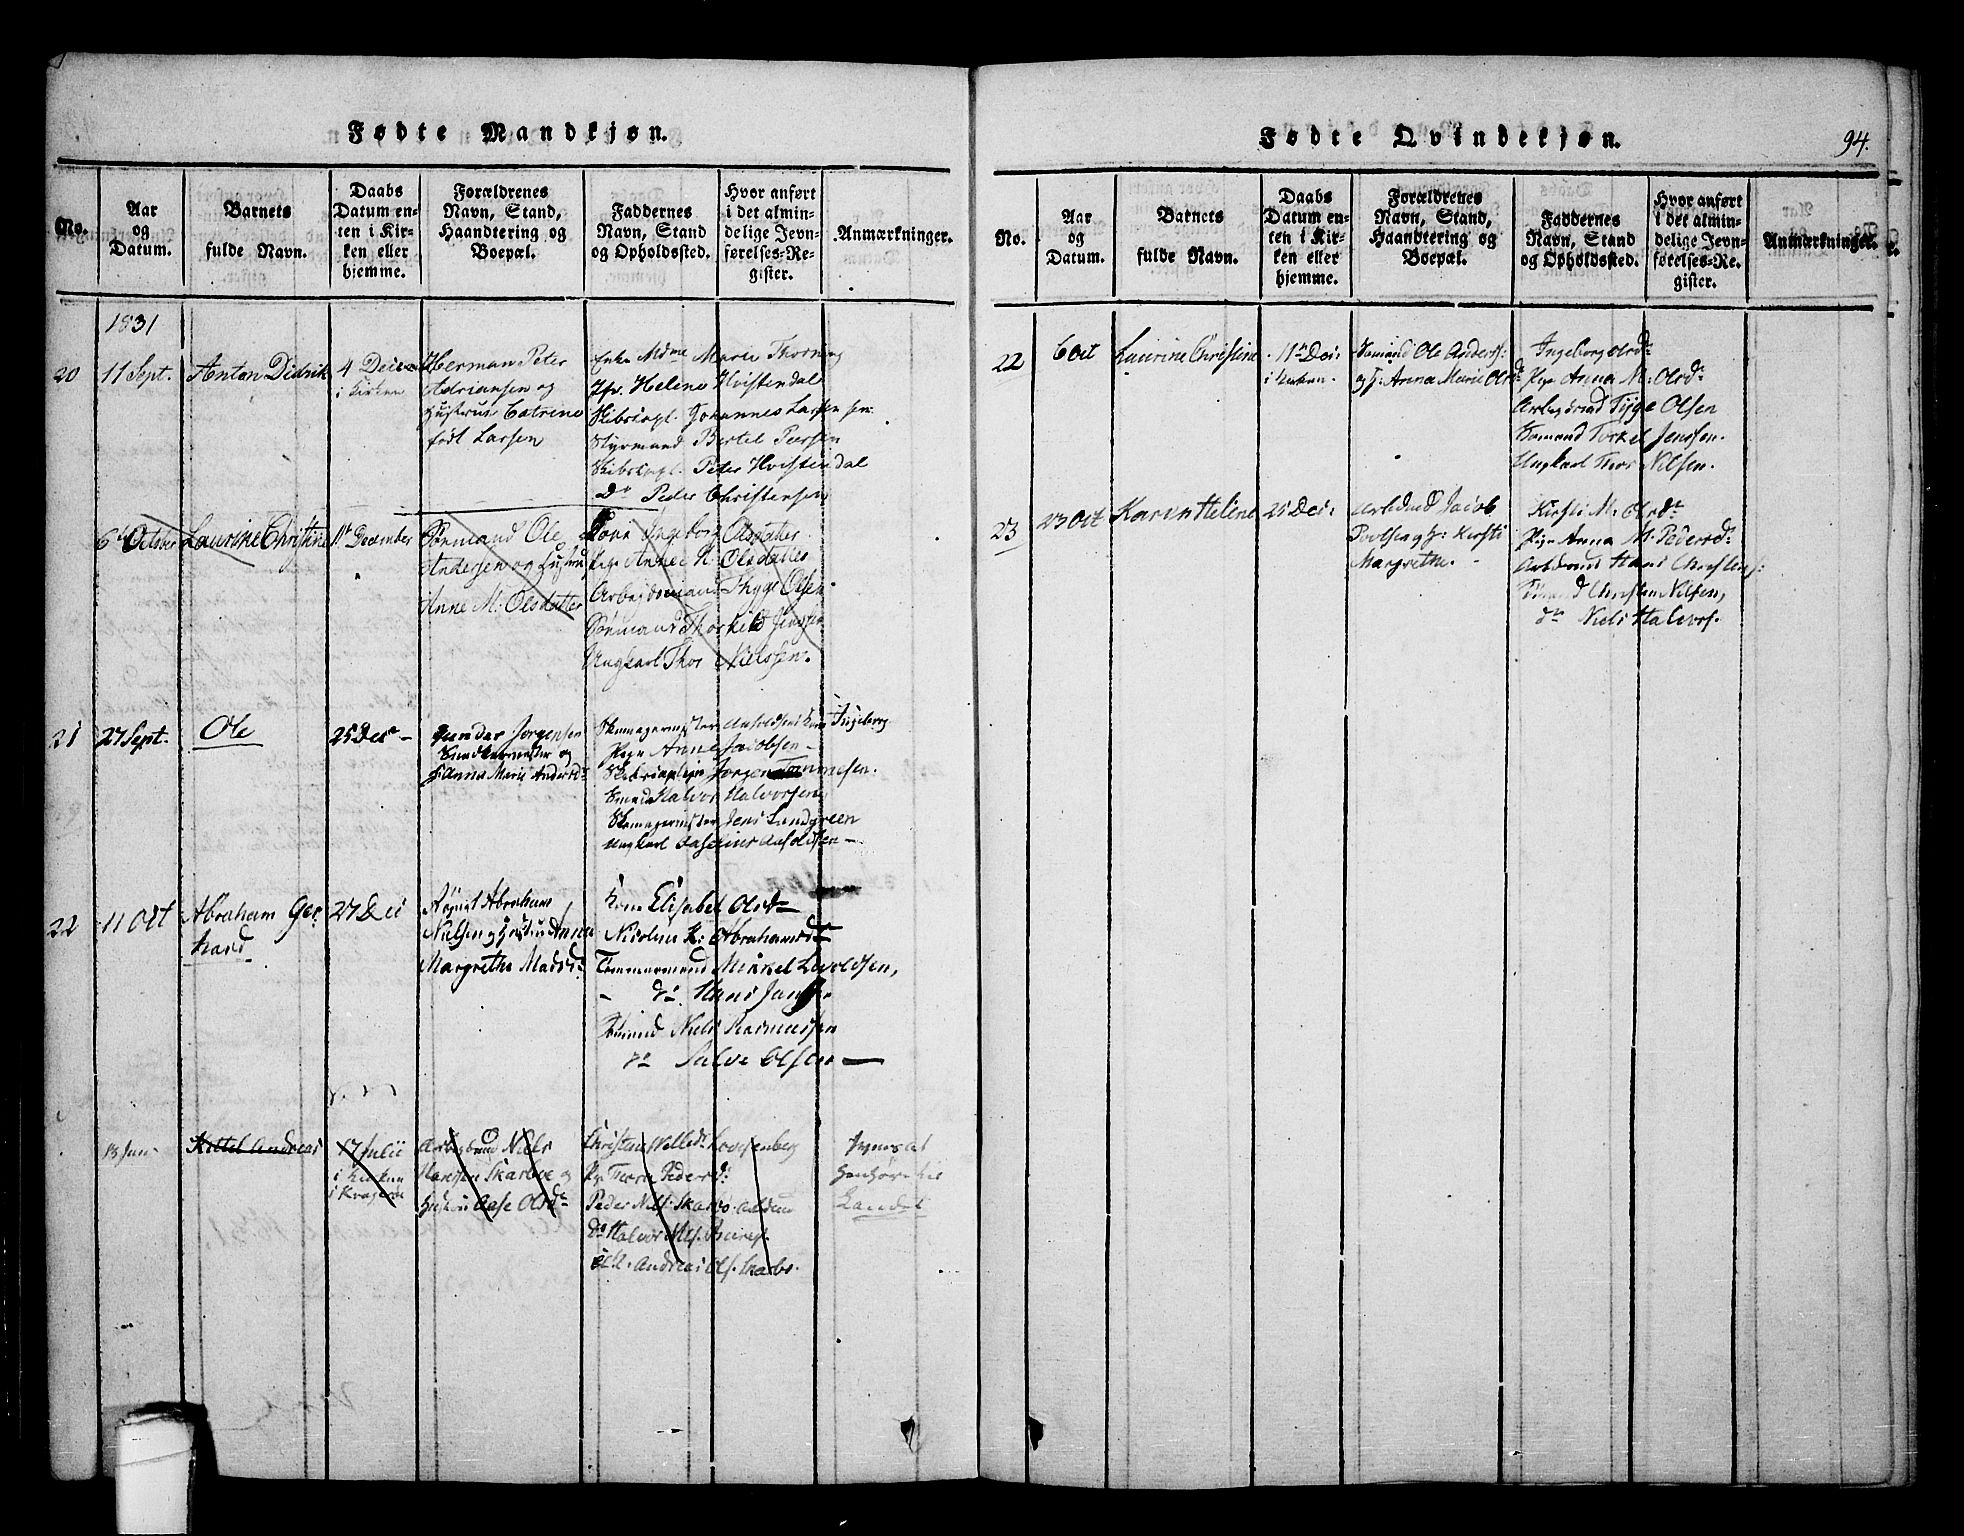 Fødte Mandkjøn.
No.
Aar
og
Datum.
Barnets
fulde Navn.
Daabs
Datum en-
ten i Kir-
ken eller
hjemme.
Forældrenes
Navn, Stand,
Haandtering og
Boepæl.
Faddernes
Navn, Stand
og Opholdssted.
Hvor anført
i det almin-
delige Jevn-
førelses-Re-
gister.
Anmærkninger.
1831
20
11 Sept.
Anton Didrik
4 Decem
i Kirken
Herman Peter
Adriansen og
Hustrue Catrine
født Larsen
Enke Mdme Marie Thorning
Jfr. Helene Hvistendal
Skibscapt. Johannes Larsen sen:
Styrmand Bertel Peersen
Skibscapt. Peter Hvistendal
Do Peder Christensen
6te October
Laurine Christine
11te December
Sømand Ole
Andersen og Hustru
Anne M: Olsdatter
Kone Ingeborg Olsdatter
Pige Anne M: Olsdatter
Arbejdsmand Thyge Olsen
Sømand Thorkild Jensen
Ungkarl Thor Nielssen.
21
27 Sept.
Ole
25 Dec
Gunder Jorgensen
Snedkermester og
H: Anna Marie Andersd:
Skomagermester Anfeldsens Kone Ingeborg
Pige Anne Jacobsen
Skibscaptejn Jorgen Tommesen.
Smed Halvor Halvorsen,
Skomagermester Jens Lundgreen
Ungkarl
22
11 Oct
Abraham Ger
hard
27 Dec
Abraham
Nielsen og Hustru Anne
Margrethe Madsd:
Kone Elisabet Olsd
Nicoline K: Abrahamsd
Tømmermand Mikkel Levoldsen,
do. Hans Jansen
Sømand Niels Rasmussen
do Salve Olsen
13 Jun
Kittel Andreas
17 Julii
i Kirken
i Kragerøe
Arbeidsmd Niels
Hanssen Skarboe og
Hustru Aase Olsd
Christense
P. Thore Pedersd:
Peder Niels: Skarbo
do Halvor Niels.
Andreas Ols. Skarbo.
henhører til
Landet
Fødte Qvindekjøn.
94.
No.
Aar
og
Datum.
Barnets
fulde Navn.
Daabs
Datum en-
ten i Kir-
ken eller
hjemme.
Forældrenes
Navn, Stand,
Haandtering og
Boepæl.
Faddernes
Navn, Stand
og Opholdssted.
Hvor anført
i det almin-
delige Jevn-
førelses-Re-
gister.
Anmærkninger.
22
6 Oct
Laurine Christine
11te Dec:
i Kirken.
Sømand Ole Anders:
og H: Anna Marie Olsd
Ingeborg Olsd
Pige Anna M: Olsd
Arbejdsmd Tyge Olsen
Sømand Torkel Jenssen.
Ungkarl Thor Nilsen.
23
23 Oct
Karen Heline
25 Dec:
Arbdmd Jacob
Povlsen og H: Kirsti
Margrethe.
Kirsti M: Olsd
Pige Anna M: Pedersd
Arbdmd Hans Christens:
Christen Nilsen,
do Niels Halvors.